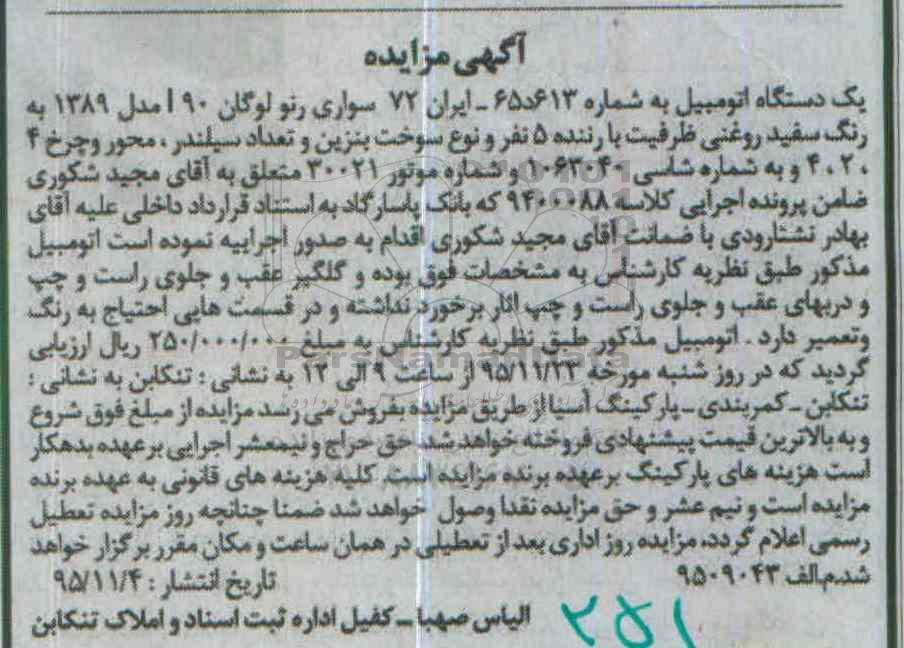 آگهی مزایده
یک دستگاه اتومبیل به شماره ۶۱۳د۶۵ ـ ایران ۷۲ سواری رنو لوگان ۹۰ l مدل ۱۳۸۹ به
رنگ سفید روغنی ظرفیت با رننده ۵ نفر و نوع سوخت بنزین و تعداد سیلندر ، محور وچرخ ۴
، ۲ ، ۴ و به شماره شاسی ۱۰۶۳۰۴۰ و شماره موتور ۳۰۰۲۱ متعلق به آقای مجید شکوری
ضامن پرونده اجرایی کلاسه ۹۴۰۰۰۸۸ که بانک پاسارگاد به استناد قرارداد داخلی علیه آقای
بهادر نشتارودی با ضمانت آقای مجید شکوری اقدام به صدور اجراییه نموده است اتومبیل
مذکور طبق نظریه کارشناس به مشخصات فوق بوده و گلگیر عقب و جلوی راست و چپ
و دربهای عقب و جلوی راست و چپ اثار برخورد نداشته و در قسمت هایی احتیاج به رنگ
وتعمیر دارد . اتومبیل مذکور طبق نظریه کارشناس به مبلغ ۲۵۰/۰۰۰/۰۰۰ ریال ارزیابی
گردید که در روز شنبه مورخه ۹۵/۱۱/۲۳ از ساعت ۹ الی ۱۲ به نشانی : تنکابن به نشانی :
تنکابن ـ کمربندی ـ پارکینگ آسیا از طریق مزایده بفروش می رسد مزایده از مبلغ فوق شروع
و به بالاترین قیمت پیشنهادی فروخته خواهد شد. حق حراج و نیمعشر اجرایی برعهده بدهکار
است هزینه های پارکینگ برعهده برنده مزایده است. کلیه هزینه های قانونی به عهده برنده
مزایده است و نیم عشر و حق مزایده نقدا وصول خواهد شد ضمنا چنانچه روز مزایده تعطیل
رسمی اعلام گردد، مزایده روز اداری بعد از تعطیلی در همان ساعت و مکان مقرر برگزار خواهد
شد.م.الف ۹۵۰۹۰۴۳ تاریخ انتشار : ۹۵/۱۱/۴
الیاس صهبا ـ کفیل اداره ثبت اسناد و املاک تنکابن
۲۵۱
ParsNamadData